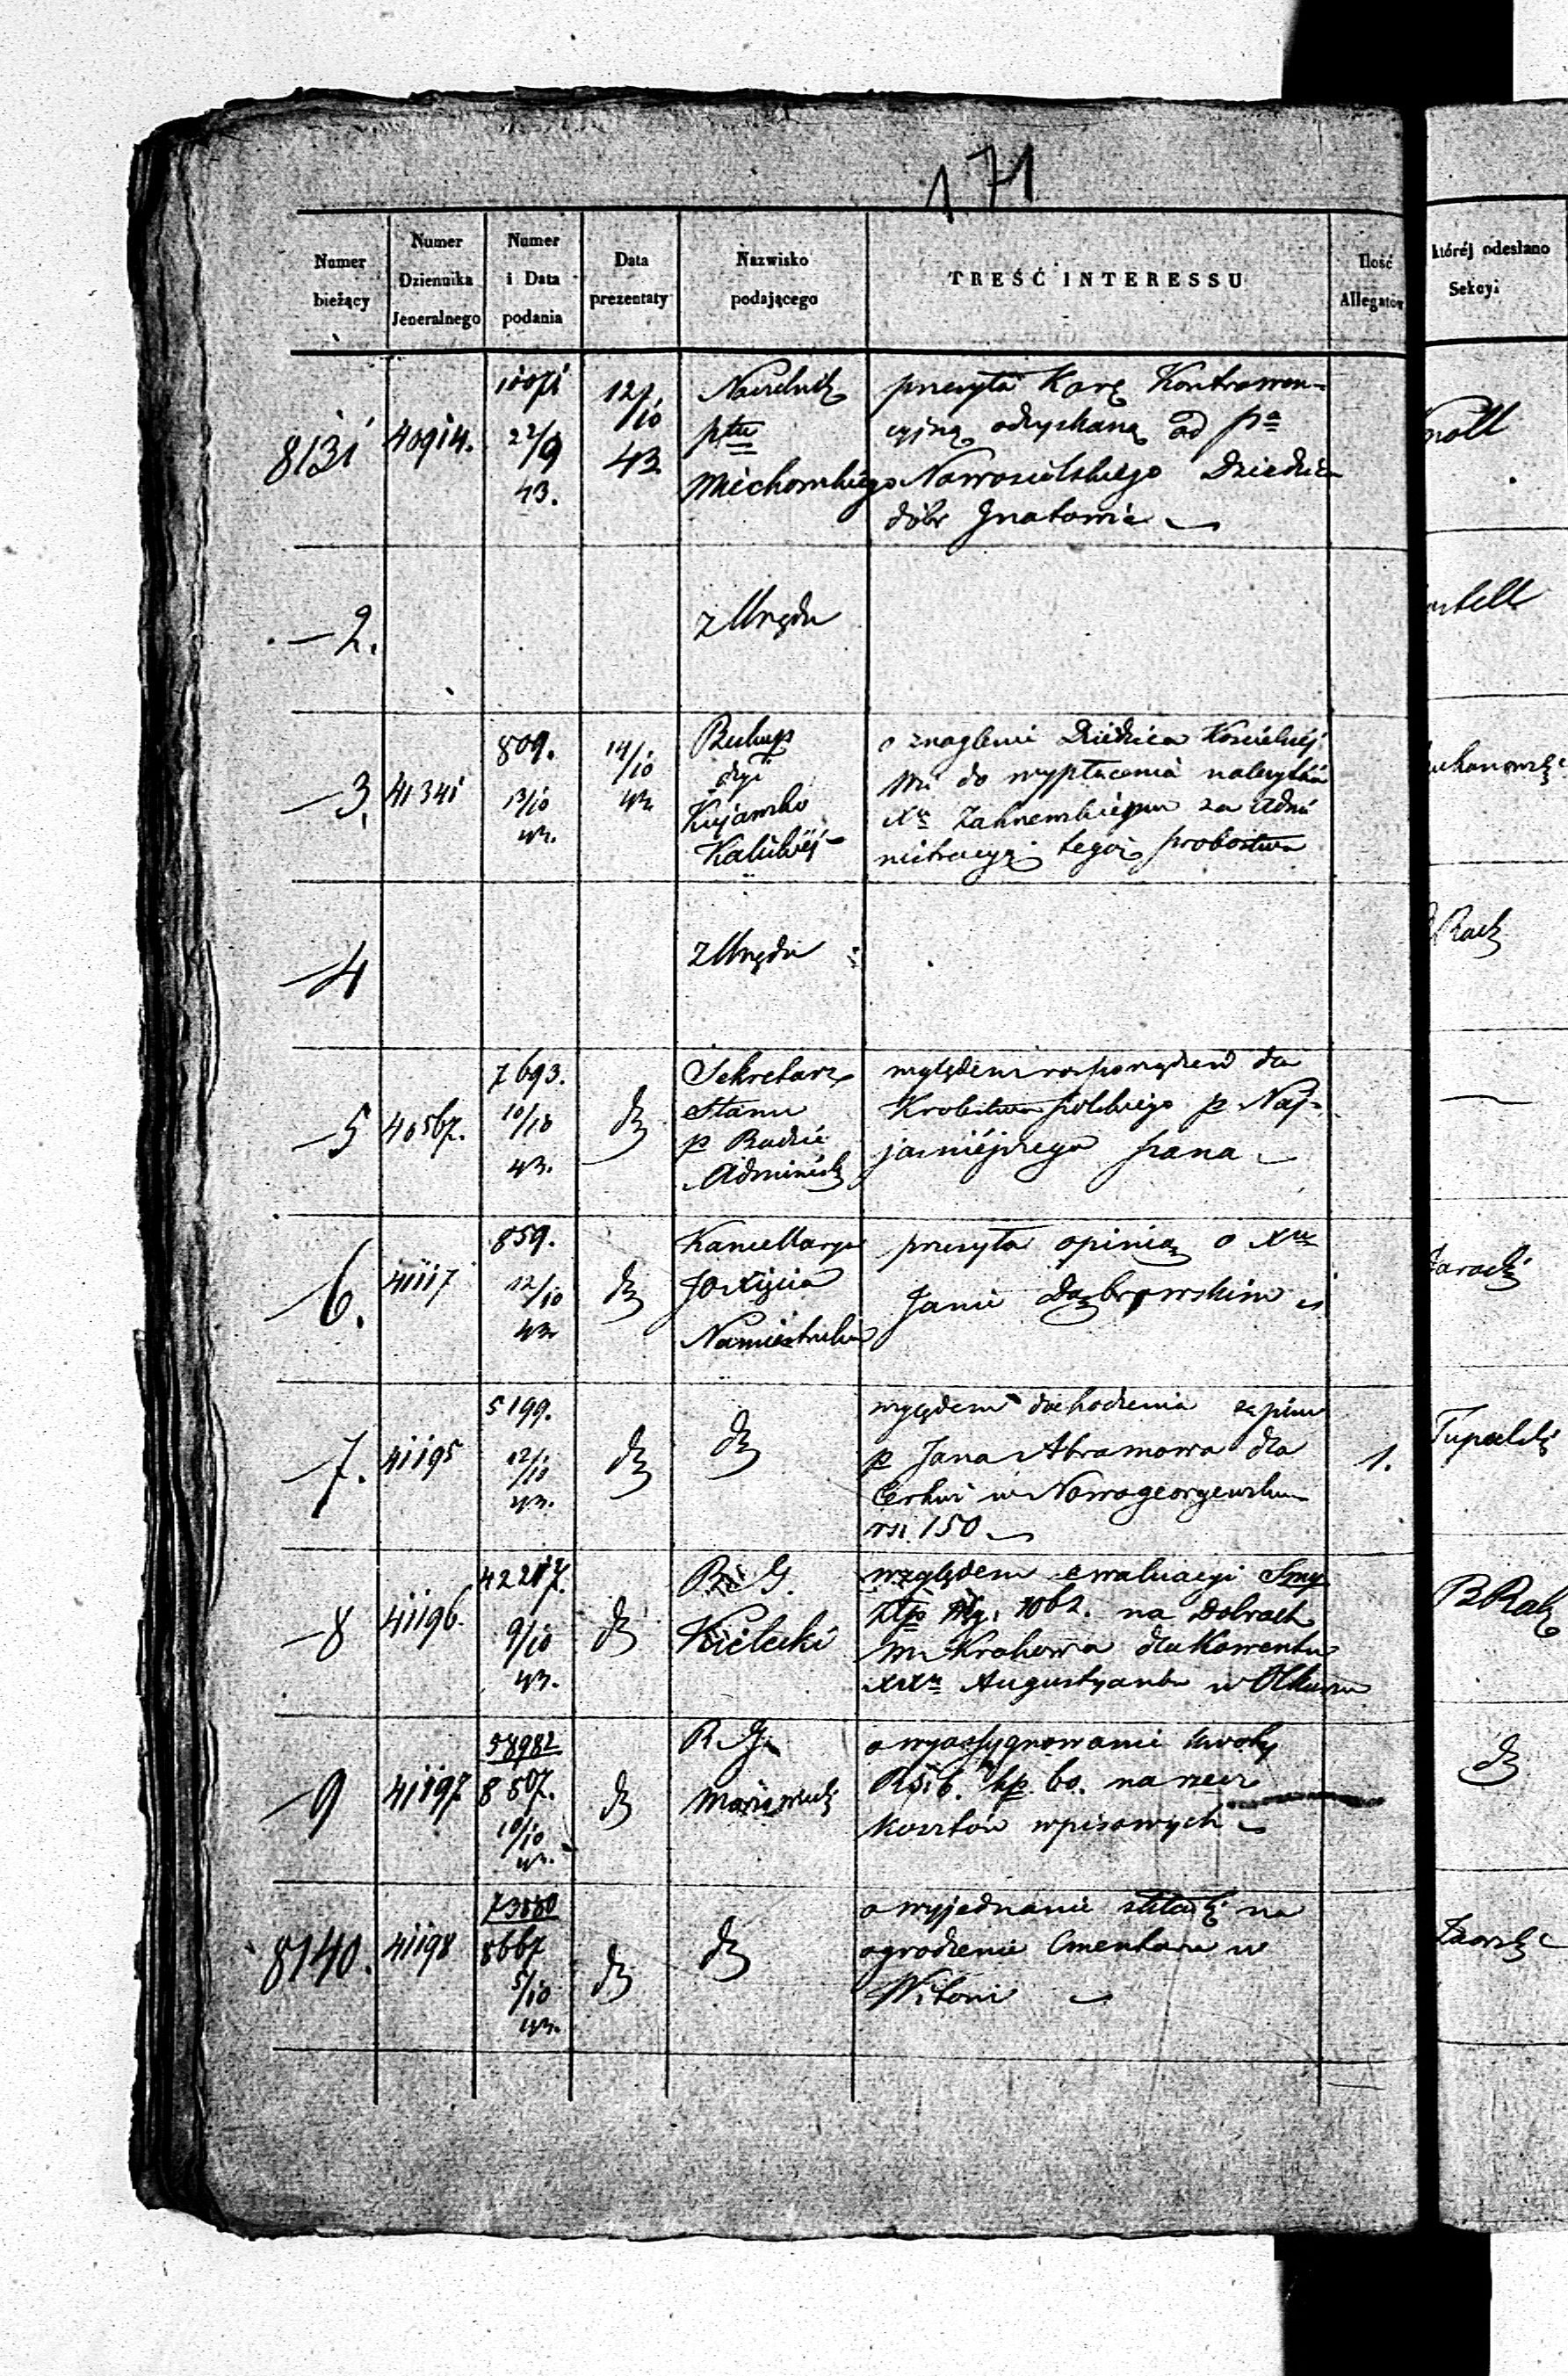 171
Numer bieżący
Numer Dziennika Jeneralnego
Numer i Data podania
Data prezentaty
Nazwisko podającego
TREŚĆ INTERESSU
Ilość Allegatów
której odesłano Sekcyi
8131 40914. 22/9 43. 12/10 43
Naczelnik
ptu
Miechowskiego
przesyła Karę Kontrawen-
cyjną odzyskaną od Pa
Nawosielskiego Dziedzica
dóbr Gnatowic
—2.
z Urzędu
—3. 41341 809. 13/10 43. 14/10 43
Biskup
dyi
Kujawsko
Kaliskiéj
o znaglenie Dziedzica Kościelnéj
Wsi do wypłacenia należytości
za Admi
nistracyą tegoż probostwa
—4
z Urzędu
—5 40567. 7693. 10/10 43. dº
Sekretarz
Stanu
p Radzie
Administ
względem rozporządzeń dla
Królestwa Polskiego p Naj-
jaśniéjszego Pana
—6. 41117 859. 12/10 43 dº
Kancellarya
JO Xięcia
Namiestnika
przesyła opinią o Xu
Janie Dąbrowskim
—7. 41195 5199. 12/10 43. dº dº
względem dochodzenia zapisu
p Jana Abramowa dla
Cerkwi w Nowogeorgewsku
rsr. 150
1.
—8 41196. 9/10 43. dº
R. G.
Kielecki
względem ewaluacyi Smy
Złp 1062. na Dobrach
m Krakowa dla Konwentu
XXw Augustyanów w Olkuszu
—9 41197 58982 8507. 10/10 43. dº
R. G.
Mazowiecki
o wyassygnowanie kwoty
Rsr 6. kp. 60. na rzecz
kosztów wpisowych
dº
8140. 41198 8667 5/10 43. dº dº
o wyjednanie składki na
ogrodzenie Cmentarza w
Witoni